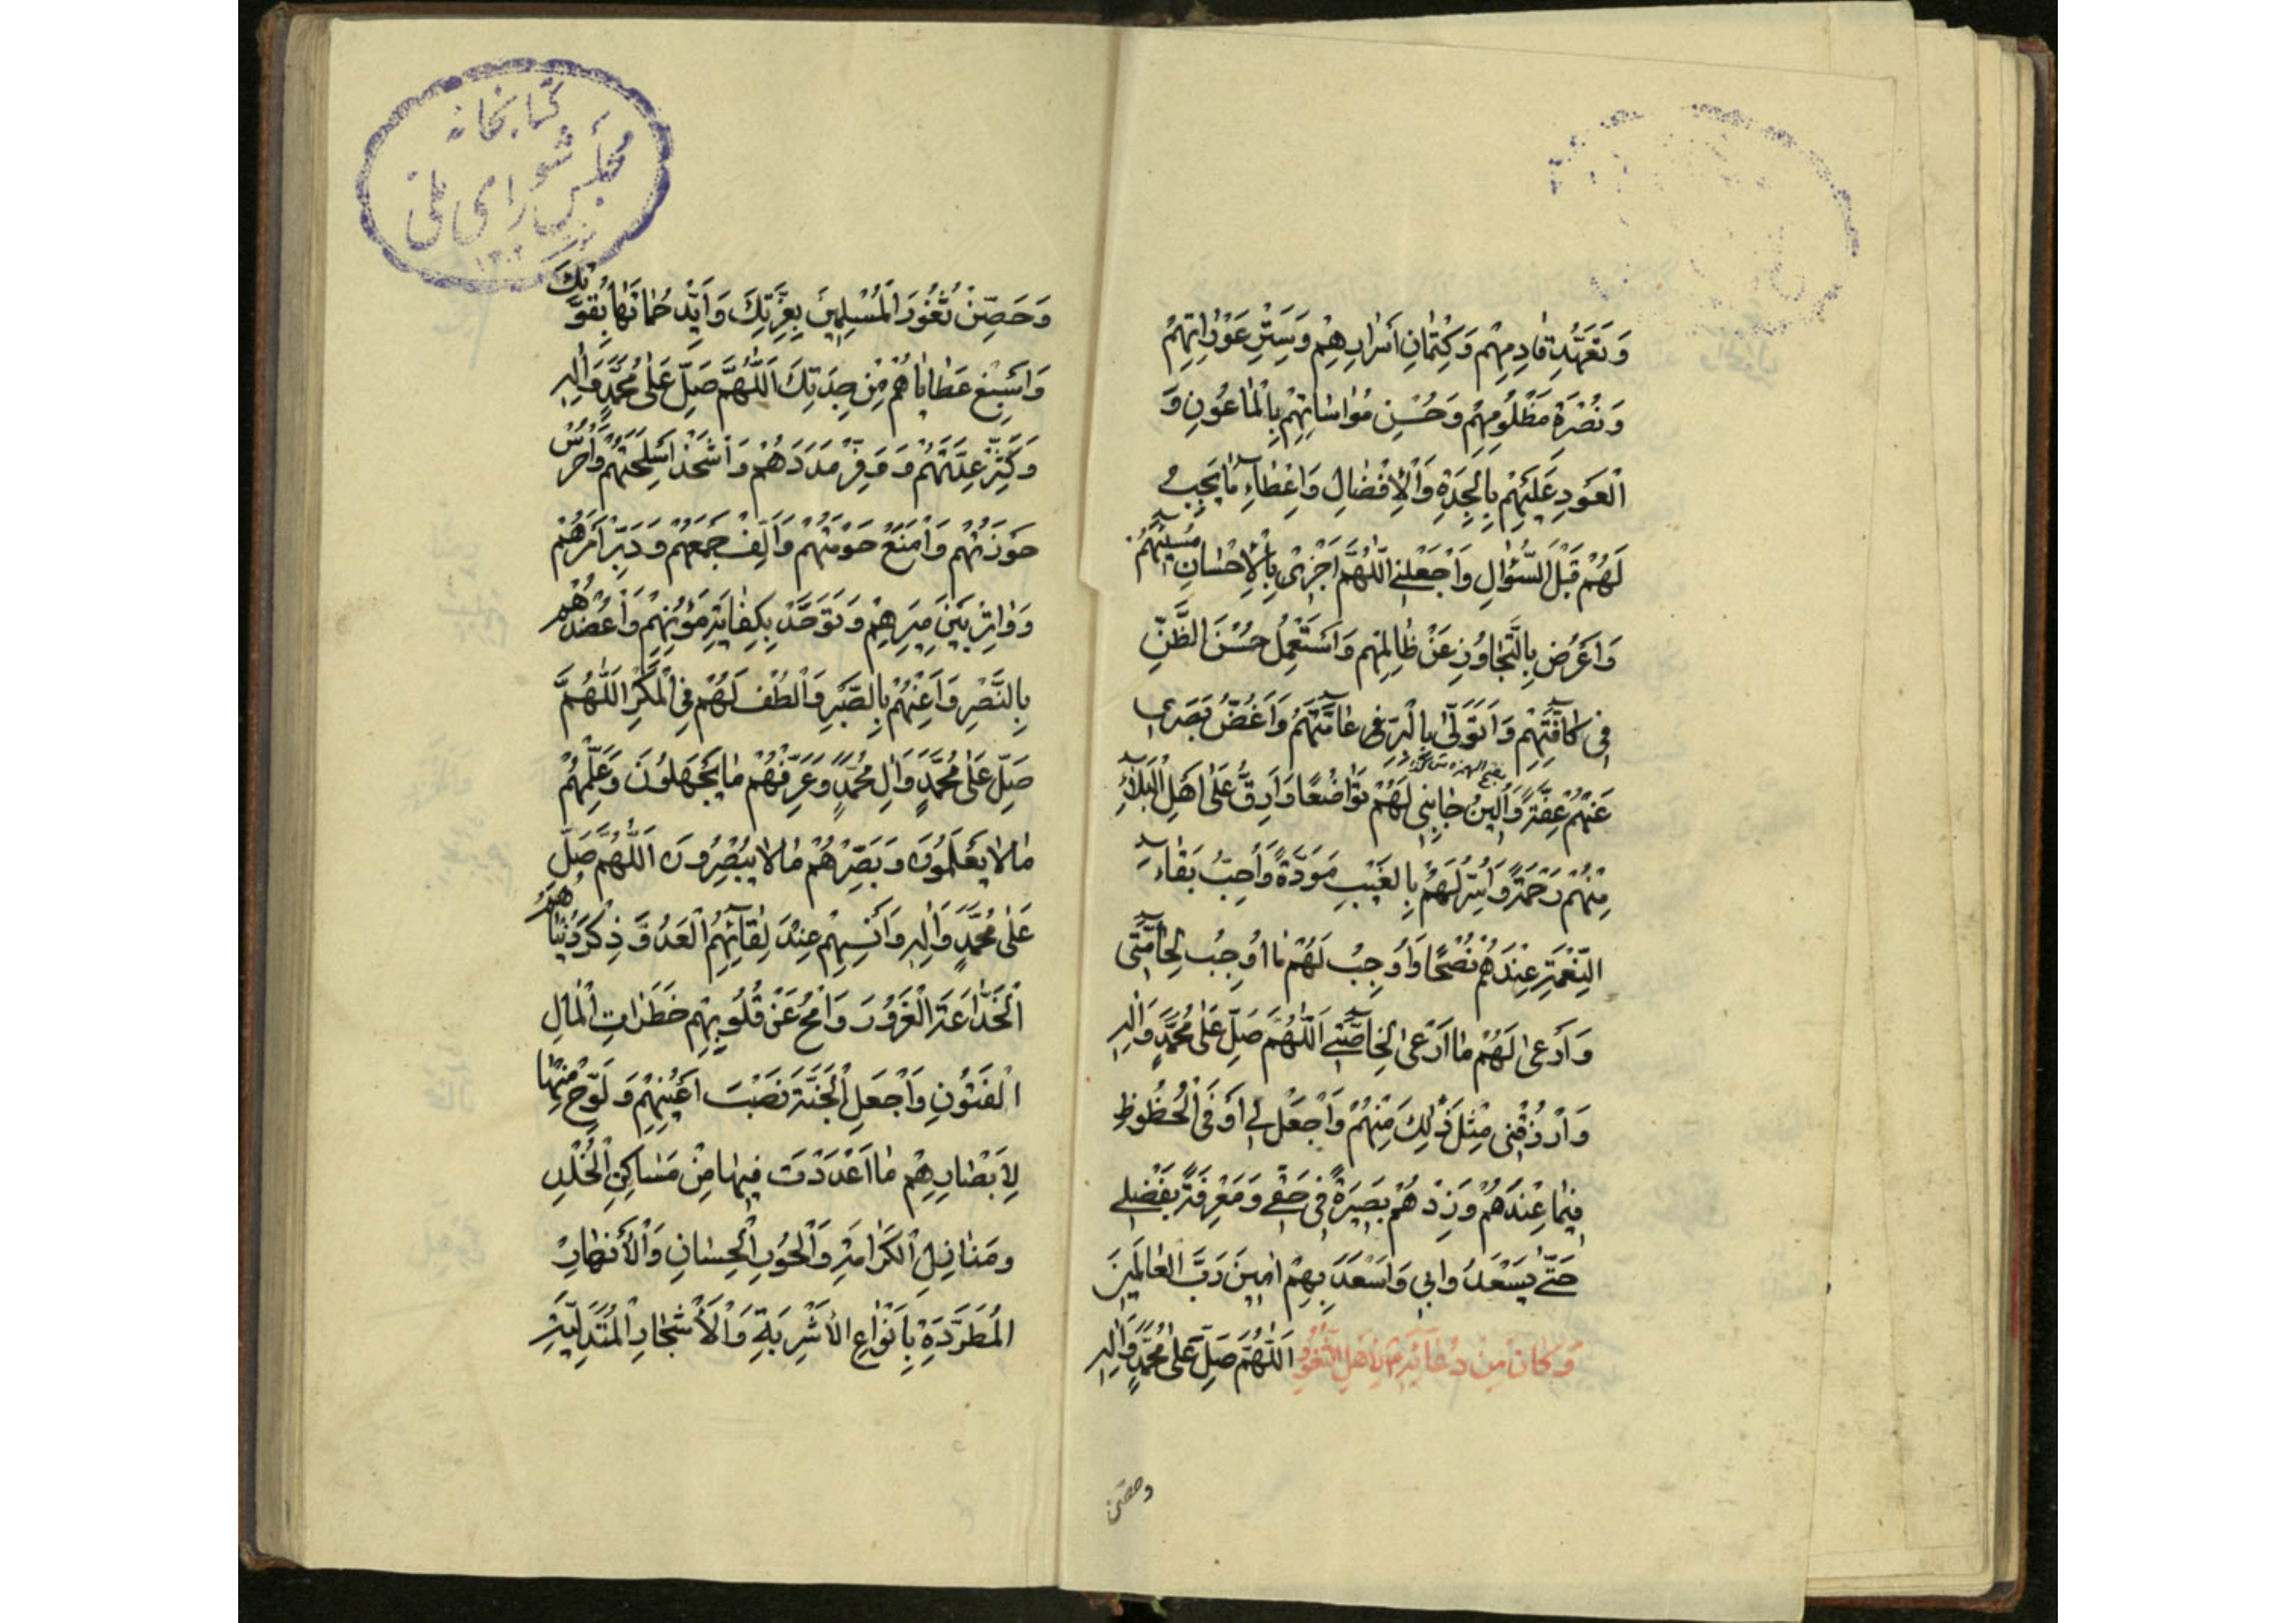 وَتَعَهُّدِ قَادِمِهِمْ وَكِتْمَانِ أَسْرَارِهِمْ وَسَتْرِ عَوْرَاتِهِمْ
وَنُصْرَةِ مَظْلُومِهِمْ وَحُسْنِ مُوَاسَاتِهِمْ بِالْمَاعُونِ وَ
الْعَوْدِ عَلَيْهِمْ بِالْجِدَةِ وَالْإِفْضَالِ وَإِعْطَاءِ مَا يَجِبُ
لَهُمْ قَبْلَ السُّؤَالِ وَاجْعَلْنِي اللَّهُمَّ أَجْزِي بِالْإِحْسَانِ مُسِيئَهُمْ
وَاَعْرِضُ بِالتَّجَاوُزِ عَنْ ظَالِمِهِمْ وَاَسْتَعْمِلُ حُسْنَ الظَّنِّ
فِي كَافَّتِهِمْ وَاَتَوَلَّى بِالْبِرِّ فِي عَامَّتِهِمْ وَاَغُضُّ بَصَرِي
عَنْهُمْ عِفَّةً وَاُلِينُ جَانِبِي لَهُمْ تَوَاضُعًا وَاَرِقُّ عَلَى اَهْلِ الْبَلَاءِ
مِنْهُمْ رَحْمَةً وَاُسِرُّ لَهُمْ بِالْغَيْبِ مَوَدَّةً وَاُحِبُّ بَقَاءَ
النِّعْمَةِ عِنْدَهُمْ نُصْحًا وَاُوجِبُ لَهُمْ مَا اُوجِبُ لِحَامَّتِي
وَاَرْعَى لَهُمْ مَا اَرْعَى لِخَاصَّتِي اَللَّهُمَّ صَلِّ عَلَى مُحَمَّدٍ وَآلِهِ
وَارْزُقْنِي مِثْلَ ذَلِكَ مِنْهُمْ وَاجْعَلْ لِي اَوْفَى الْحُظُوظِ
فِيمَا عِنْدَهُمْ وَزِدْهُمْ بَصِيرَةً فِي حَقِّي وَمَعْرِفَةً بِفَضْلِي
حَتَّى يَسْعَدُوا بِي وَاَسْعَدَ بِهِمْ امِينَ رَبَّ الْعَالَمِينَ
وَكَانَ مِنْ دُعَائِهِ ع لِأَهْلِ الثُّغُورِ اَللَّهُمَّ صَلِّ عَلَى مُحَمَّدٍ وَآلِهِ
وحصن
كتابخانه
مجلس شورای ملی
وَحَصِّنْ ثُغُورَ الْمُسْلِمِينَ بِعِزَّتِكَ وَاَيِّدْ حُمَاتَهَا بِقُوَّتِكَ
وَاَسْبِغْ عَطَايَاهُمْ مِنْ جِدَتِكَ اَللَّهُمَّ صَلِّ عَلَى مُحَمَّدٍ وَآلِهِ
وَكَثِّرْ عِدَّتَهُمْ وَوَفِّرْ مَدَدَهُمْ وَاشْحَذْ اَسْلِحَتَهُمْ وَاحْرُسْ
حَوْزَتَهُمْ وَامْنَعْ حَوْمَتَهُمْ وَاَلِّفْ جَمْعَهُمْ وَدَبِّرْ اَمْرَهُمْ
وَوَاتِرْ بَيْنَ مِيَرِهِمْ وَتَوَحَّدْ بِكِفَايَةِ مُؤَنِهِمْ وَاعْضُدْهُمْ
بِالنَّصْرِ وَاَعِنْهُمْ بِالصَّبْرِ وَالْطُفْ لَهُمْ فِي الْمَكْرِ اللَّهُمَّ
صَلِّ عَلَى مُحَمَّدٍ وَالِ مُحَمَّدٍ وَعَرِّفْهُمْ مَا يَجْهَلُونَ وَعَلِّمْهُمْ
مَا لَا يَعْلَمُونَ وَبَصِّرْهُمْ مَا لَا يُبْصِرُونَ اَللَّهُمَّ صَلِّ
عَلَى مُحَمَّدٍ وَالِهِ وَاَنْسِهِمْ عِنْدَ لِقَائِهِمُ الْعَدُوَّ ذِكْرَ دُنْيَاهُمُ
الْخَدَّاعَةِ الْغَرُورِ وَامْحُ عَنْ قُلُوبِهِمْ خَطَرَاتِ الْمَالِ
الْفَتُونِ وَاجْعَلِ الْجَنَّةَ نَصْبَ اَعْيُنِهِمْ وَلَوِّحْ مِنْهَا
لِاَبْصَارِهِمْ مَا اَعْدَدْتَ فِيهَا مِنْ مَسَاكِنِ الْخُلْدِ
وَمَنَازِلِ الْكَرَامَةِ وَالْحُورِ الْحِسَانِ وَالْأَنْهَارِ
الْمُطَّرِدَةِ بِاَنْوَاعِ الْأَشْرِبَةِ وَالْأَشْجَارِ الْمُتَدَلِّيَةِ